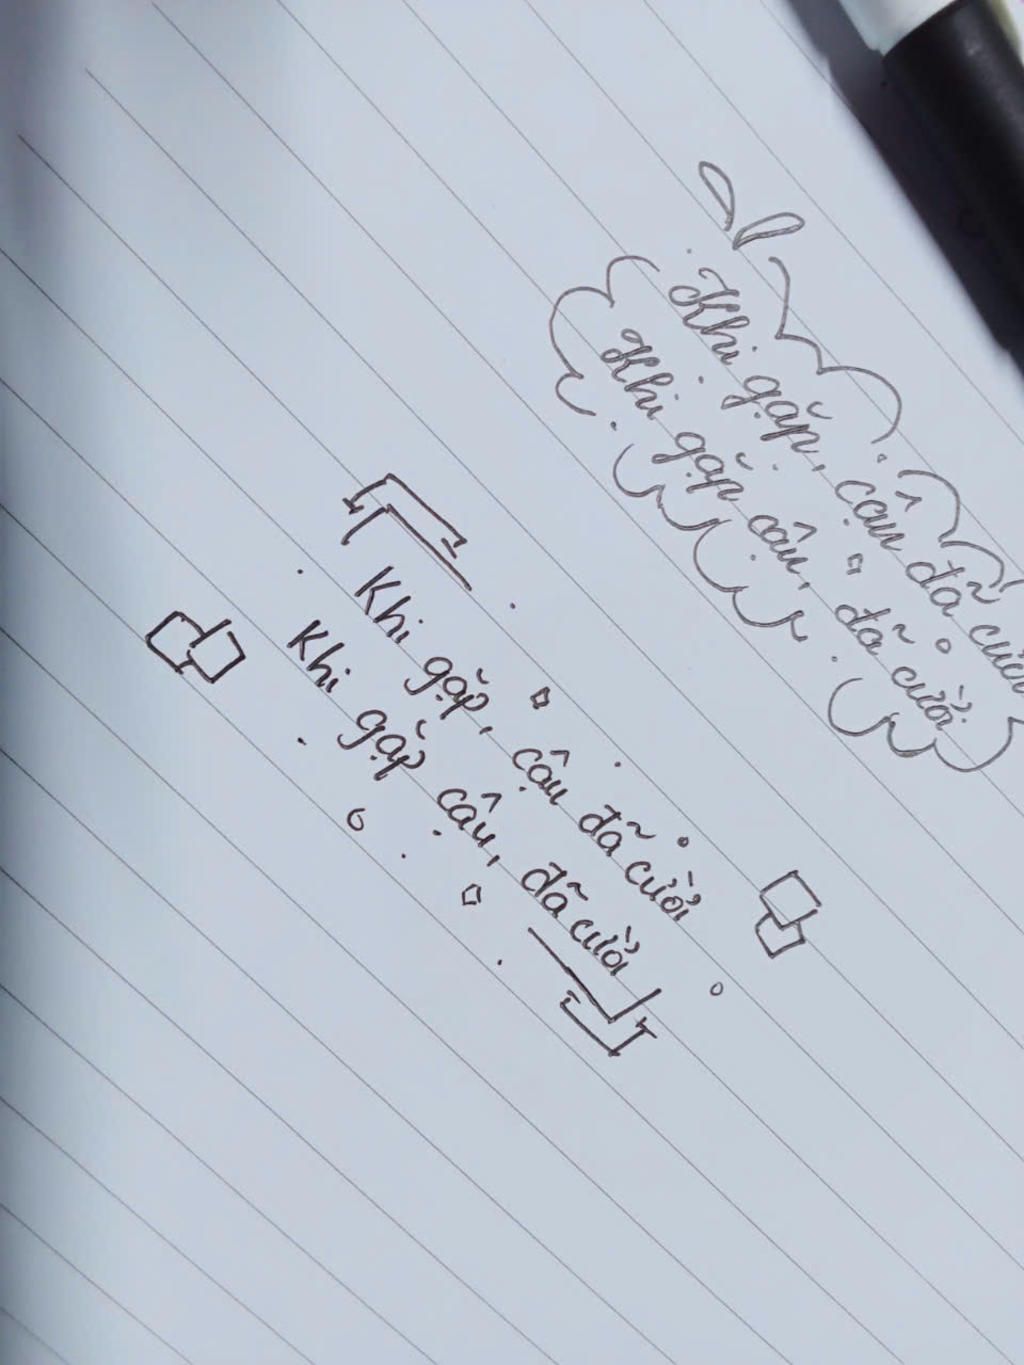 Khi gặp, cậu đã cười
Khi gặp cậu, đã cười
Khi gặp, cậu đã cười
Khi gặp cậu, đã cười